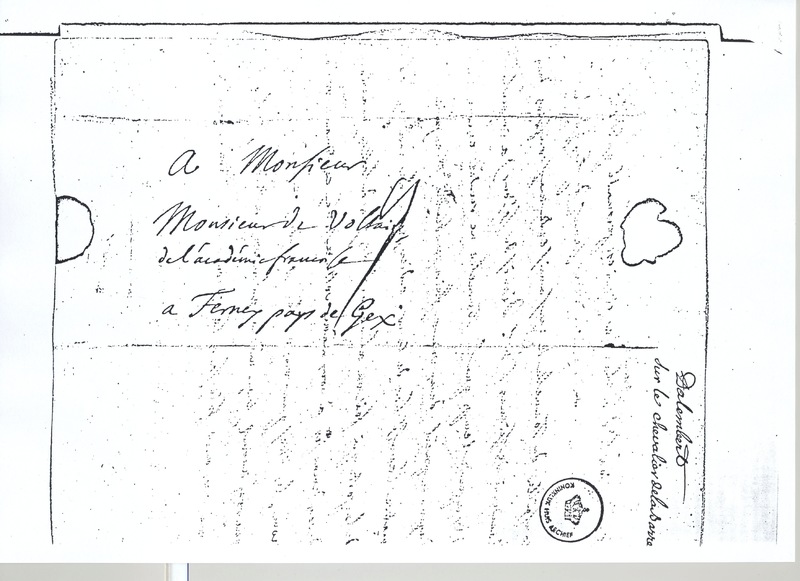 A Monsieur
Monsieur de Voltaire
de l'académie françoise
a Ferney pays de Gex
Dalembert
sur le chevalier de la barre
KONINKLIJK HUIS ARCHIEF